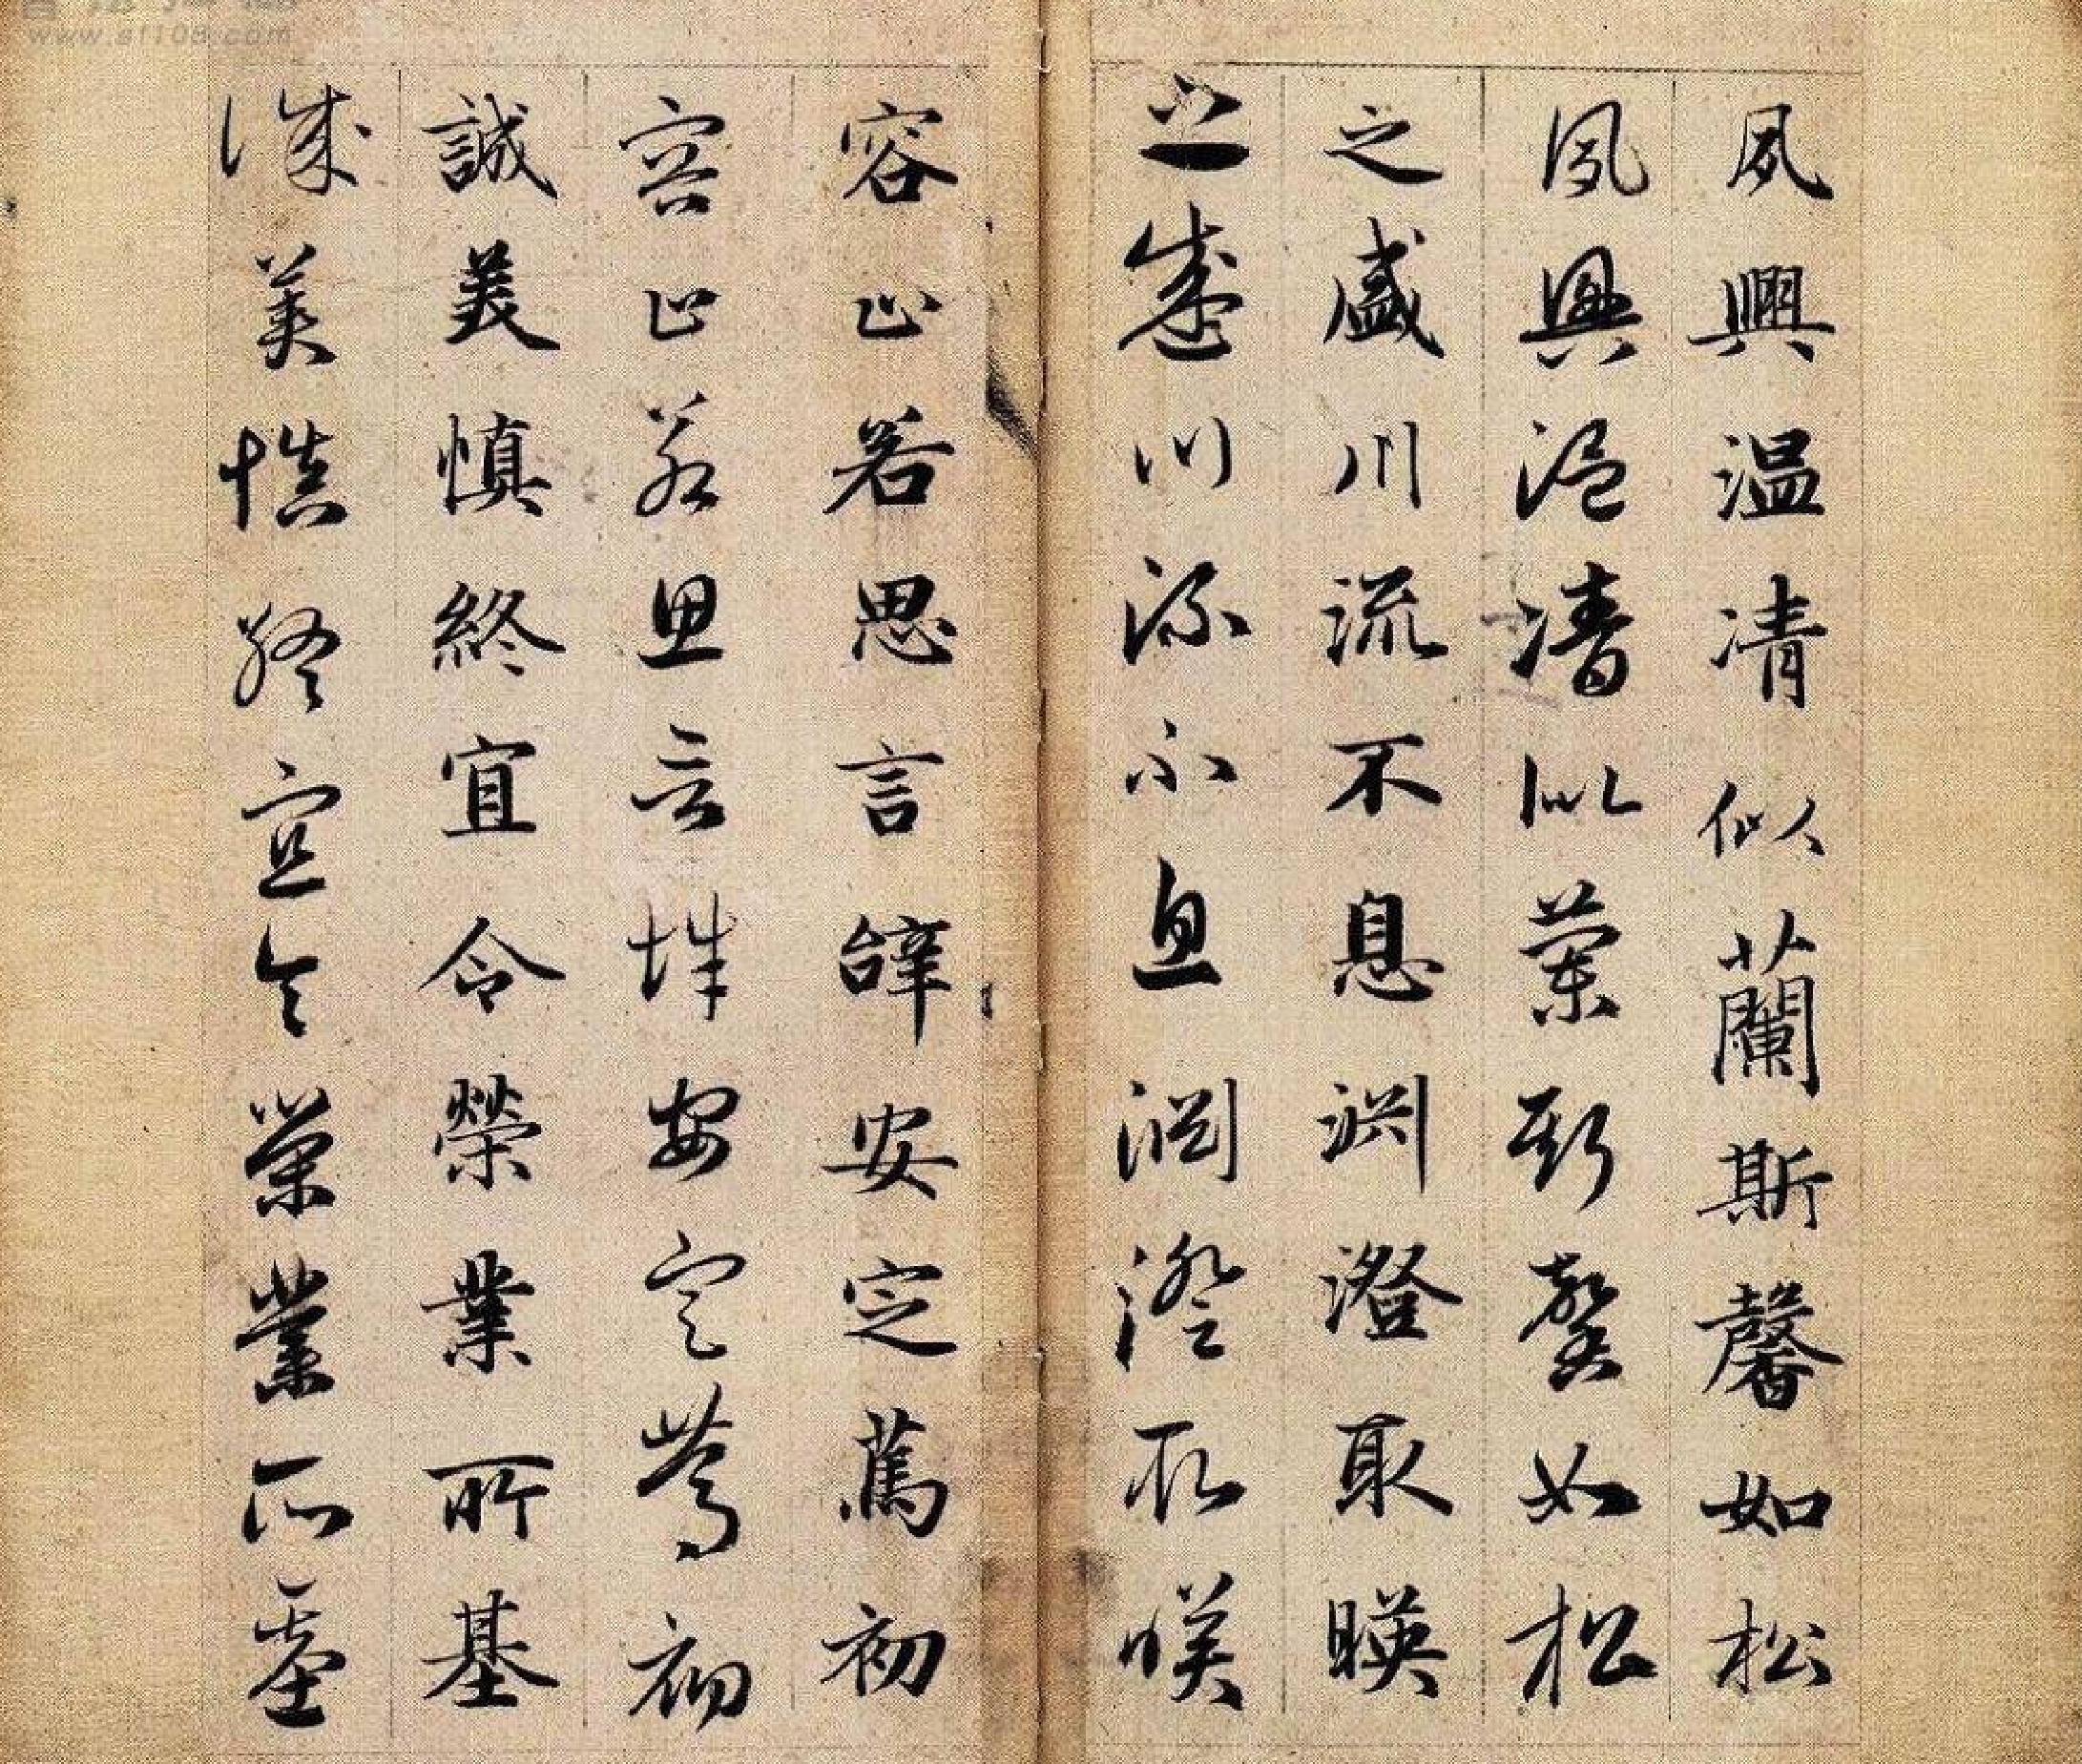 夙興温凊似蘭斯馨如松
夙興温凊似蘭斯馨如松
之盛川流不息淵澄取暎
之盛川流不息淵澄取暎
容止若思言辝安定篤初
容止若思言辝安定篤初
誠美慎終宜令榮業所基
誠美慎終宜令榮業所基
www.sf108.com